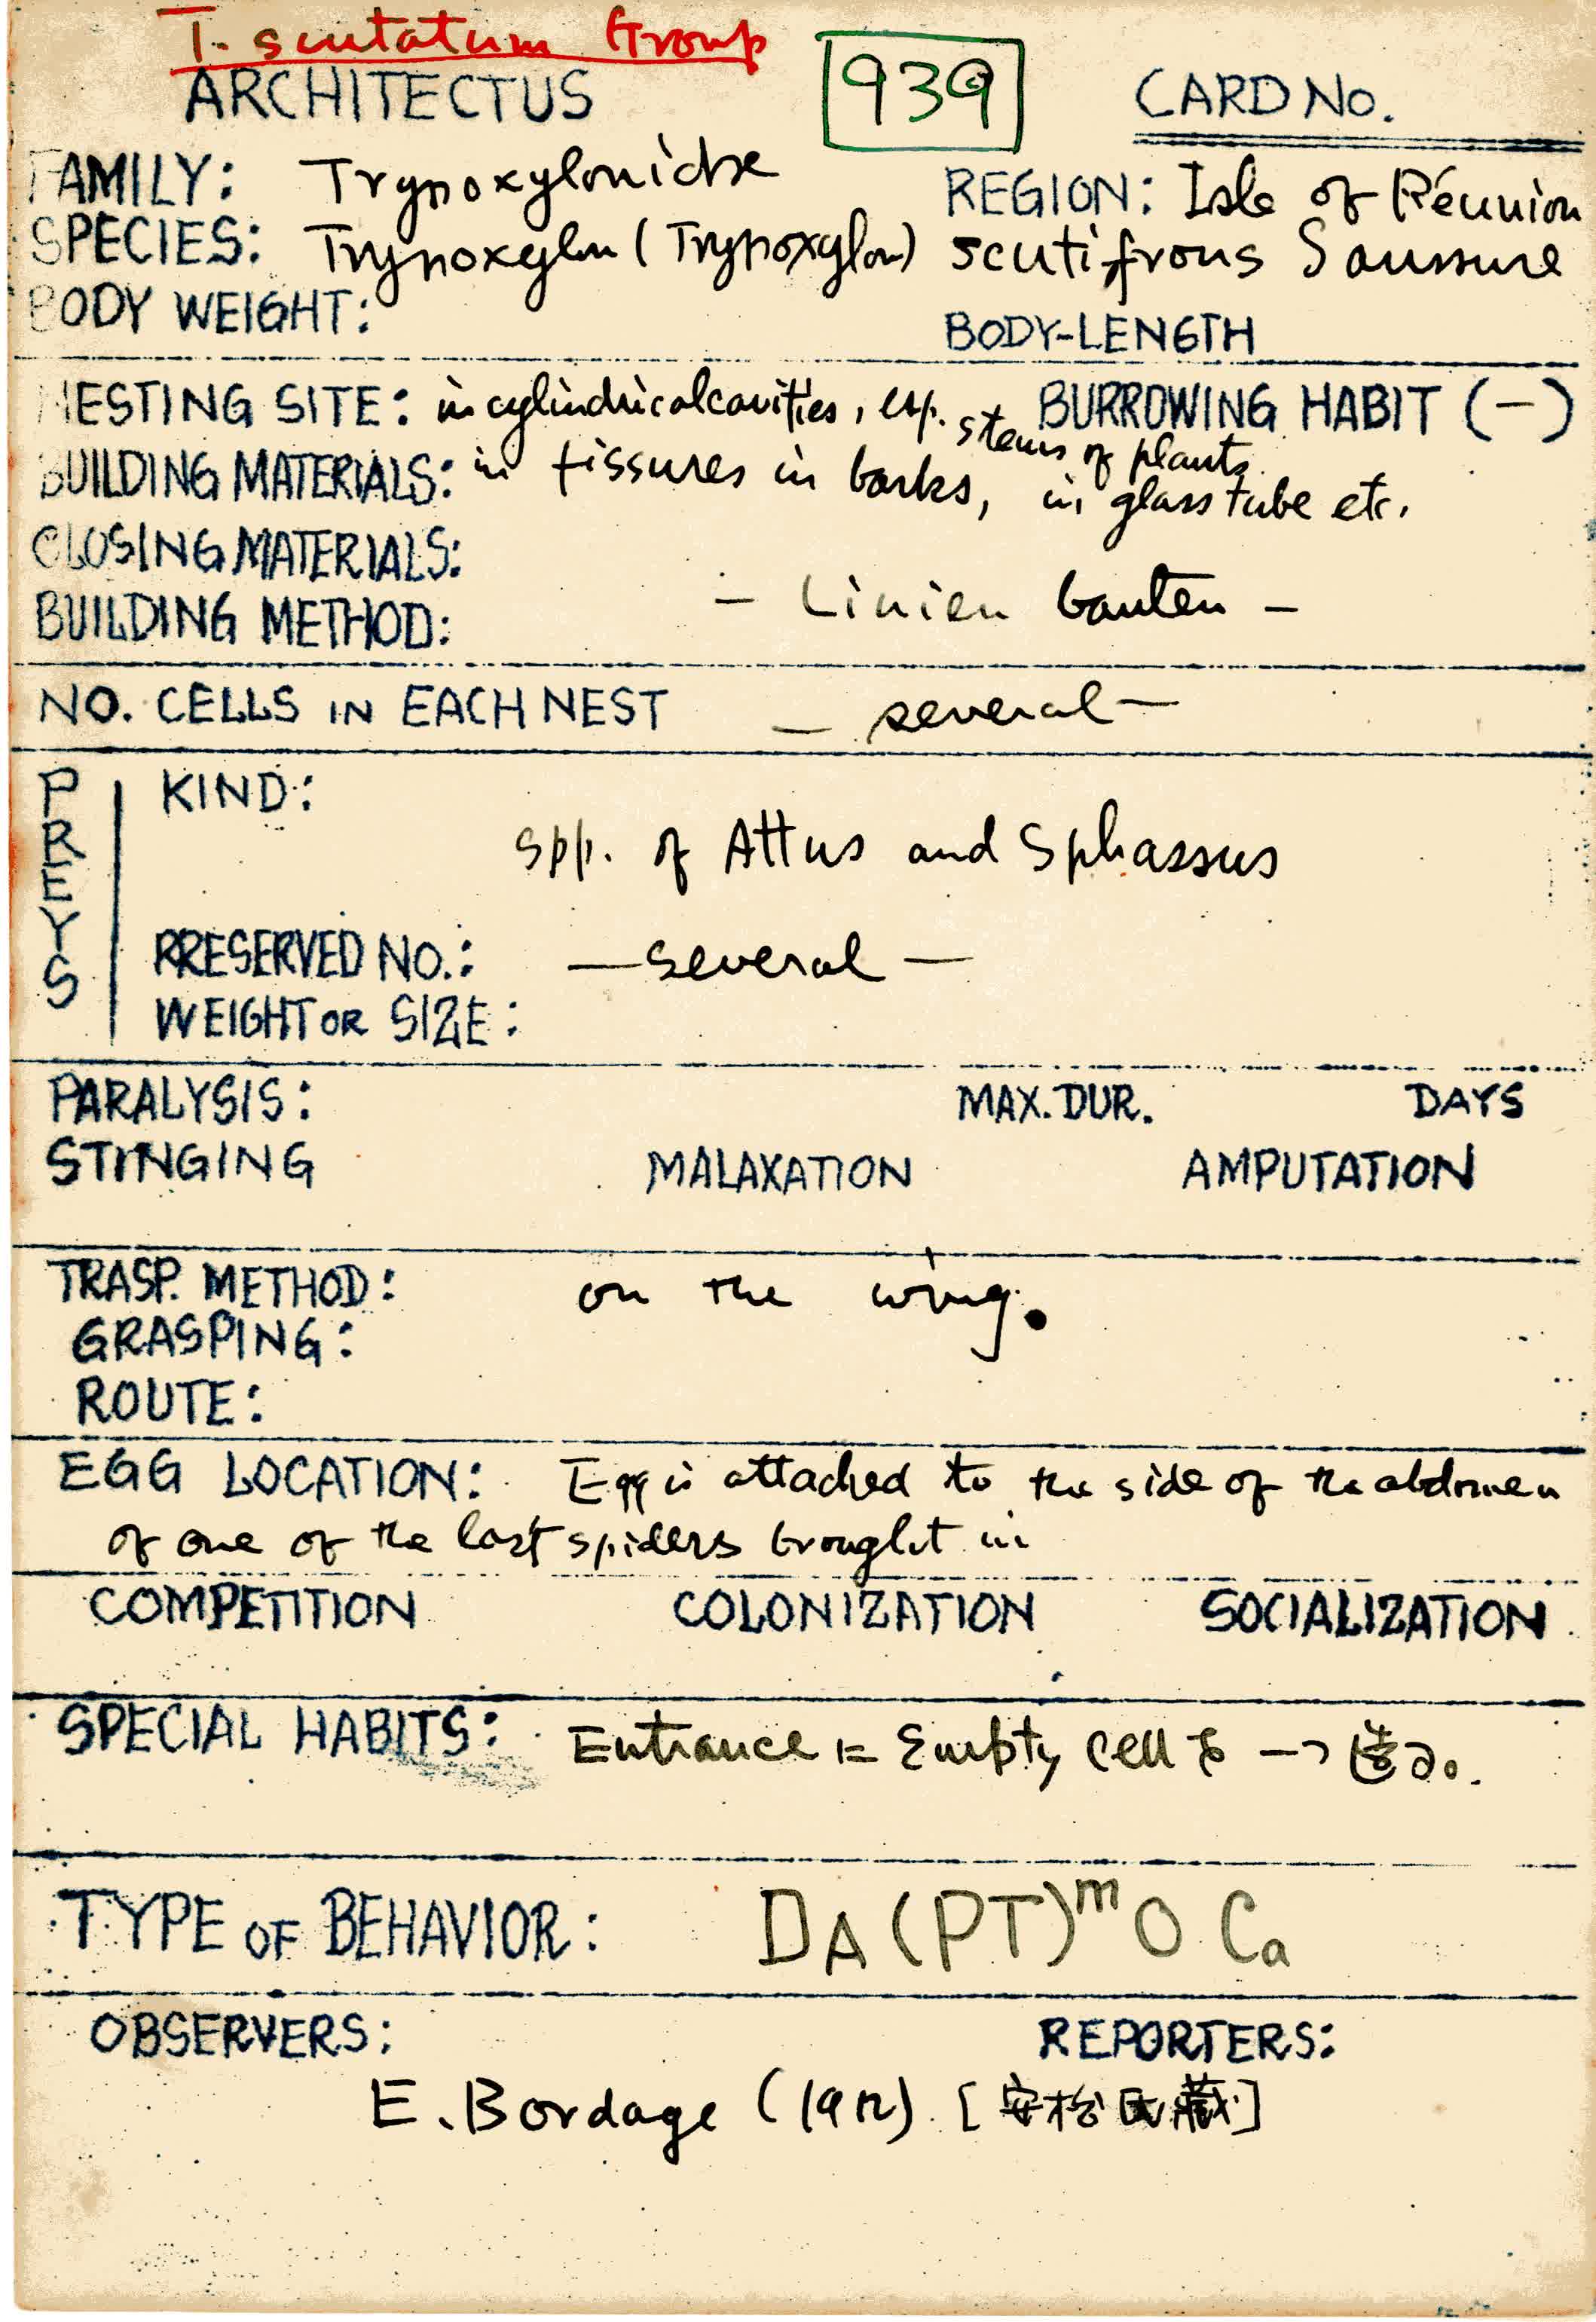 T. scutatum Group
ARCHITECTUS 939 CARD NO.
FAMILY: Trypoxylonidae REGION: Isle of Réunion
SPECIES: Trypoxylon (Trypoxylon) scutifrons Saussure
BODY WEIGHT: BODY-LENGTH
NESTING SITE: in cylindrical cavities, esp. stems of plants. BURROWING HABIT (−)
BUILDING MATERIALS: in fissures in barks, in glass tube etc.
CLOSING MATERIALS:
BUILDING METHOD: – Linienbauten –
NO. CELLS IN EACH NEST – several –
PREYS
KIND:
spp. of Attus and Sphassus
PRESERVED NO.: – several –
WEIGHT OR SIZE:
PARALYSIS: MAX. DUR. DAYS
STINGING MALAXATION AMPUTATION
TRASP. METHOD: on the wing.
GRASPING:
ROUTE:
EGG LOCATION: Egg is attached to the side of the abdomen
of one of the last spiders brought in
COMPETITION COLONIZATION SOCIALIZATION
SPECIAL HABITS: Entrance に Empty cell を 一つ造る。
TYPE OF BEHAVIOR: DA(PT)ᵐO Ca
OBSERVERS: REPORTERS:
E. Bordage (1912) [安松氏蔵]